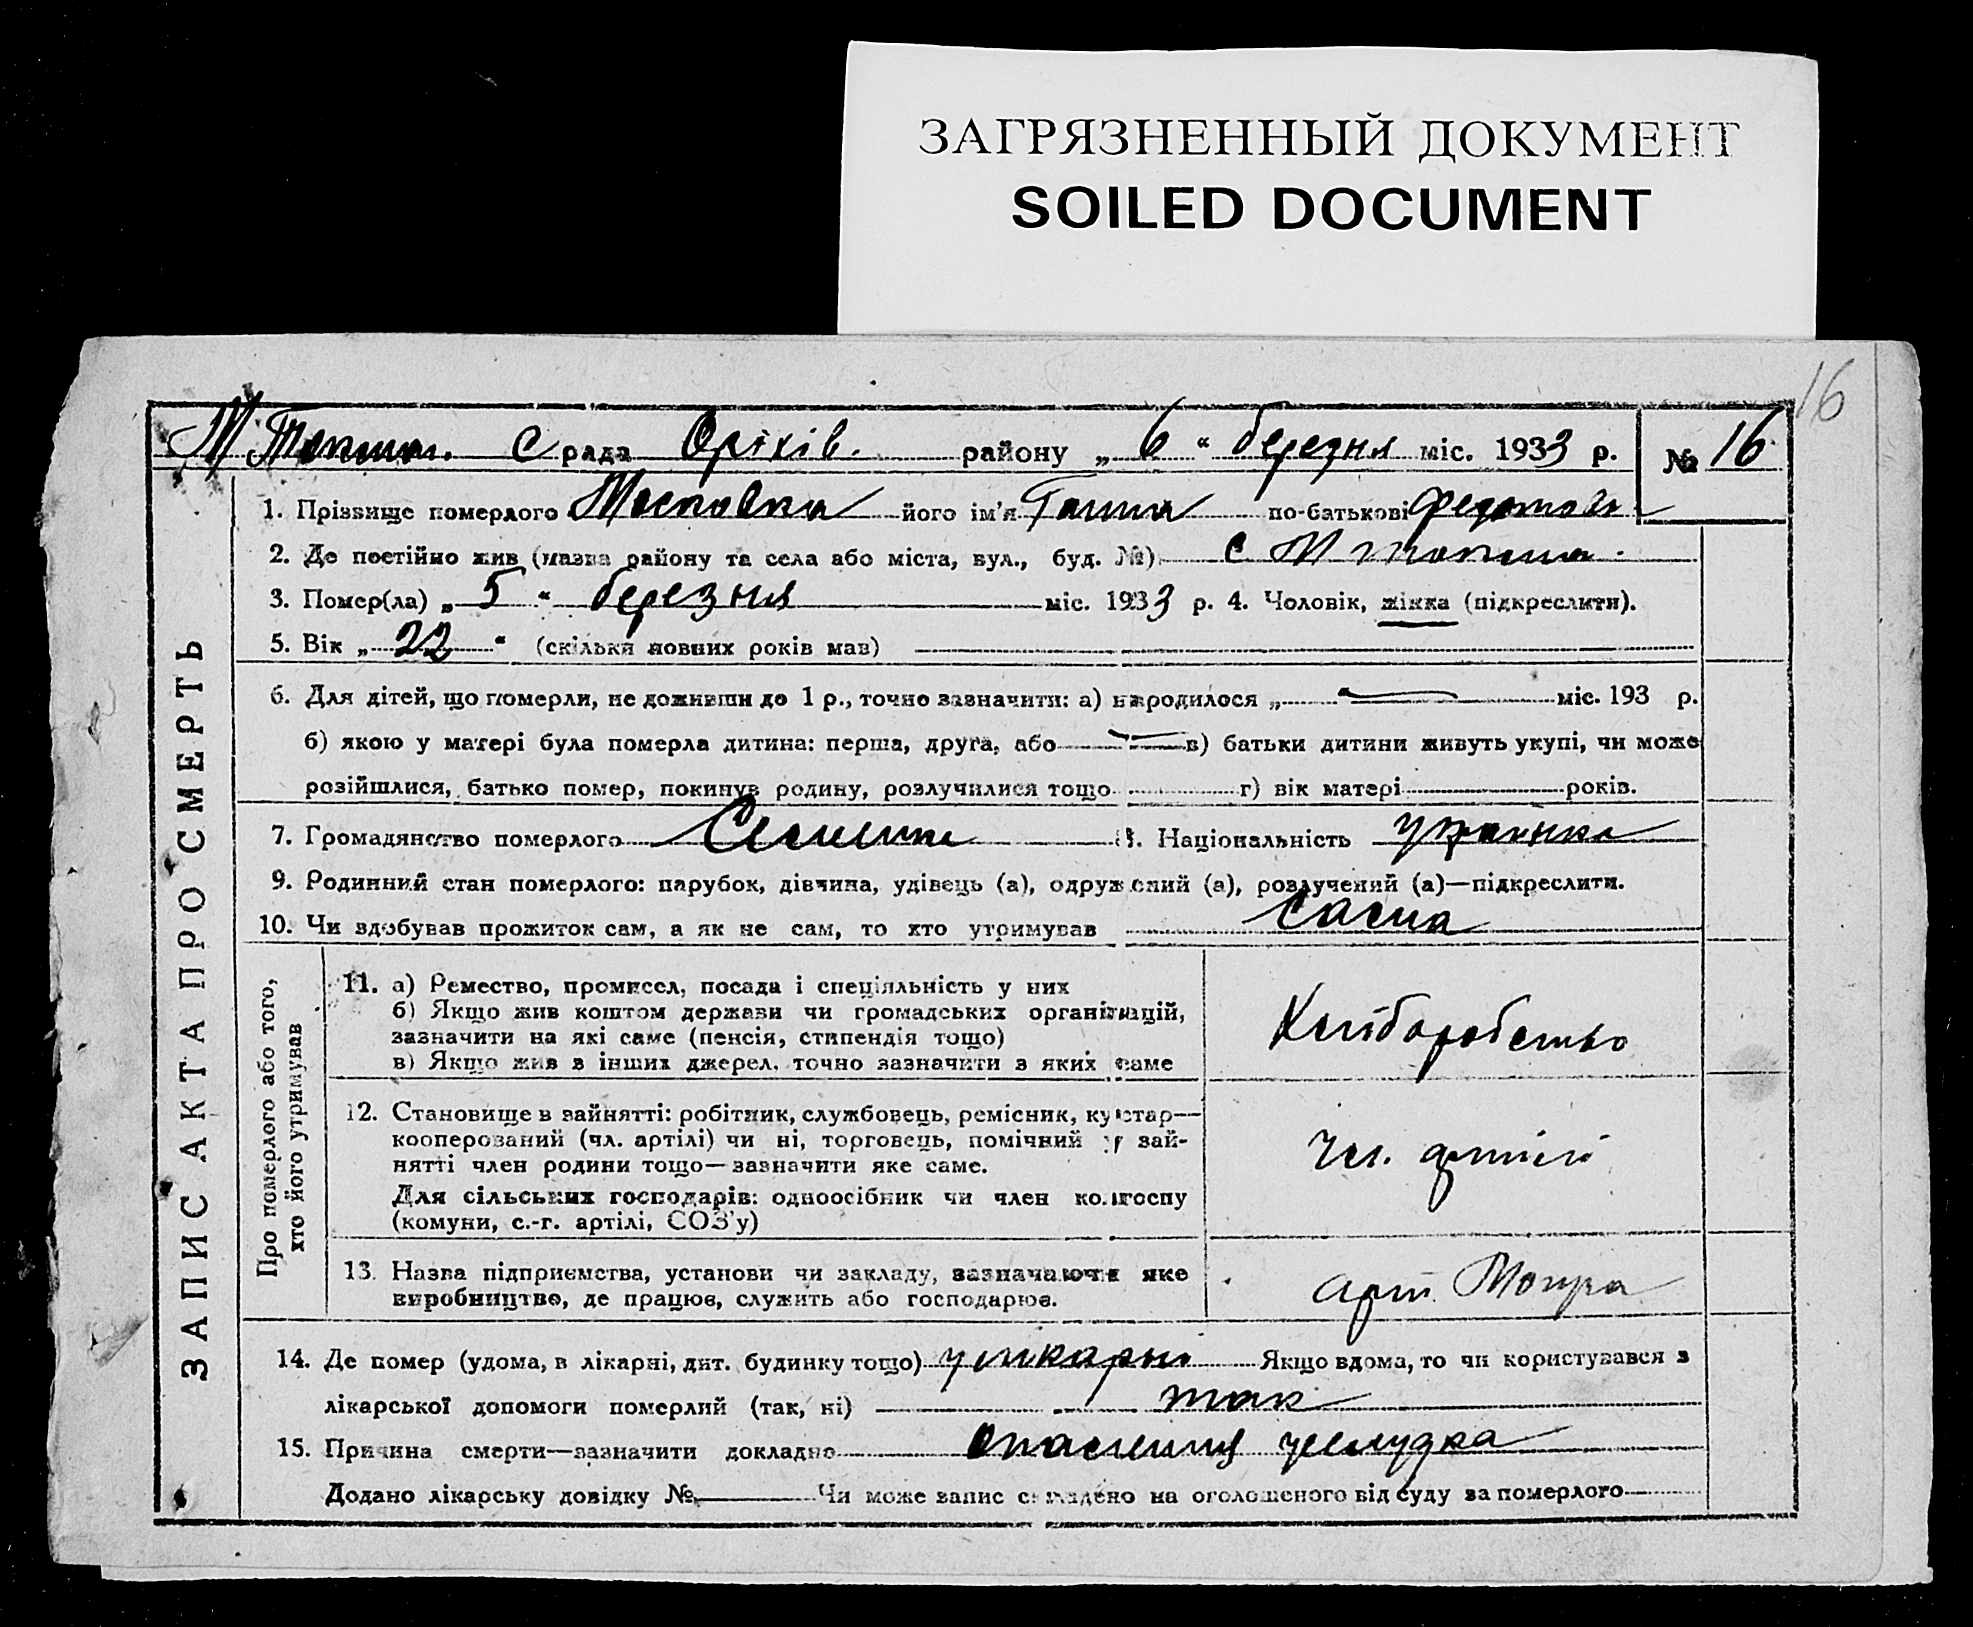 ЗАГРЯЗНЕННЫЙ ДОКУМЕНТ
SOILED DOCUMENT
16
М Токмач. С рада Оріхів. району „ 6 “ березня міс. 1933 р. № 16
ЗАПИС АКТА ПРО СМЕРТЬ
1. Прізвище померлого Московка його ім'я Ганна по-батькові
2. Де постійно жив (назва району та села або міста, вул., буд. №) с М
3. Помер(ла) „ 5 “ березня міс. 1933 р. 4. Чоловік, жінка (підкреслити).
5. Вік „ 22 “ (скільки повних років мав)
6. Для дітей, що померли, не доживши до 1 р., точно зазначити: а) народилося „ “ міс. 193 р.
б) якою у матері була померла дитина: перша, друга, або в) батьки дитини живуть укупі, чи може
розійшлися, батько помер, покинув родину, розлучилися тощо г) вік матері років.
7. Громадянство померлого 8. Національність українка
9. Родинний стан померлого: парубок, дівчина, удівець (а), одружений (а), розлучений (а)—підкреслити.
10. Чи здобував прожиток сам, а як не сам, то хто утримував сама
Про померлого або того,
хто його утримував
11. а) Ремество, промисел, посада і спеціяльність у них
б) Якщо жив коштом держави чи громадських організацій,
зазначити на які саме (пенсія, стипендія тощо)
в) Якщо жив з інших джерел, точно зазначити з яких саме
Хліборобство
12. Становище в зайнятті: робітник, службовець, ремісник, кустар—
кооперований (чл. артілі) чи ні, торговець, помічний у зай-
нятті член родини тощо—зазначити яке саме.
Для сільських господарів: одноосібник чи член колгоспу
(комуни, с.-г. артілі, СОЗ'у)
Чл. артілі
13. Назва підприємства, установи чи закладу, зазначаючи яке
виробництво, де працює, служить або господарює.
арт.
14. Де помер (удома, в лікарні, дит. будинку тощо) у лікарні Якщо вдома, то чи користувався з
лікарської допомоги померлий (так, ні) так
15. Причина смерти—зазначити докладно желудка
Додано лікарську довідку № Чи може запис складено на оголошеного від суду за померлого